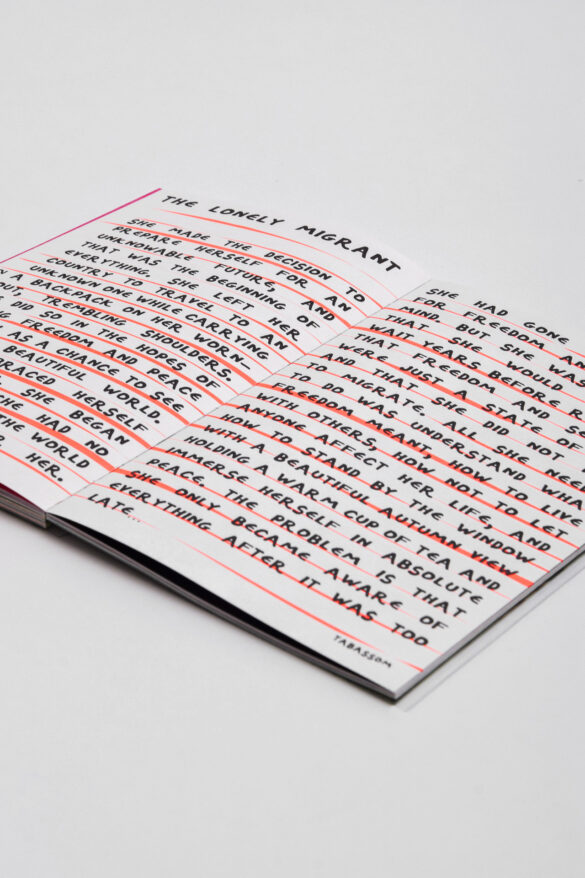 THE LONELY MIGRANT
SHE MADE THE DECISION TO
PREPARE HERSELF FOR AN
UNKNOWABLE FUTURE, AND
THAT WAS THE BEGINNING OF
EVERYTHING. SHE LEFT HER
COUNTRY TO TRAVEL TO AN
UNKNOWN ONE WHILE CARRYING
A BACKPACK ON HER WORN-
TREMBLING SHOULDERS.
DID SO IN THE HOPES OF
FREEDOM AND PEACE
AS A CHANCE TO SEE
BEAUTIFUL WORLD.
HERSELF
SHE BEGAN
HAD NO
THE WORLD
HER.
SHE HAD GONE
FOR FREEDOM AND
MIND BUT SHE WA
WHAT SHE WOULD
WAIT YEARS BEFORE R
THAT FREEDOM AND S
WERE JUST A STATE OF
AND THAT SHE DID NOT
TO MIGRATE. ALL SHE NEE
TO DO WAS UNDERSTAND WHAT
FREEDOM MEANT, HOW TO LIV
WITH OTHERS, HOW NOT TO LET
ANYONE AFFECT HER LIFE, AND
HOW TO STAND BY THE WINDOW
WITH A BEAUTIFUL AUTUMN VIEW
HOLDING A WARM CUP OF TEA AND
IMMERSE HERSELF IN ABSOLUTE
PEACE. THE PROBLEM IS THAT
SHE ONLY BECAME AWARE OF
EVERYTHING AFTER IT WAS TOO
LATE...
TABASSOM